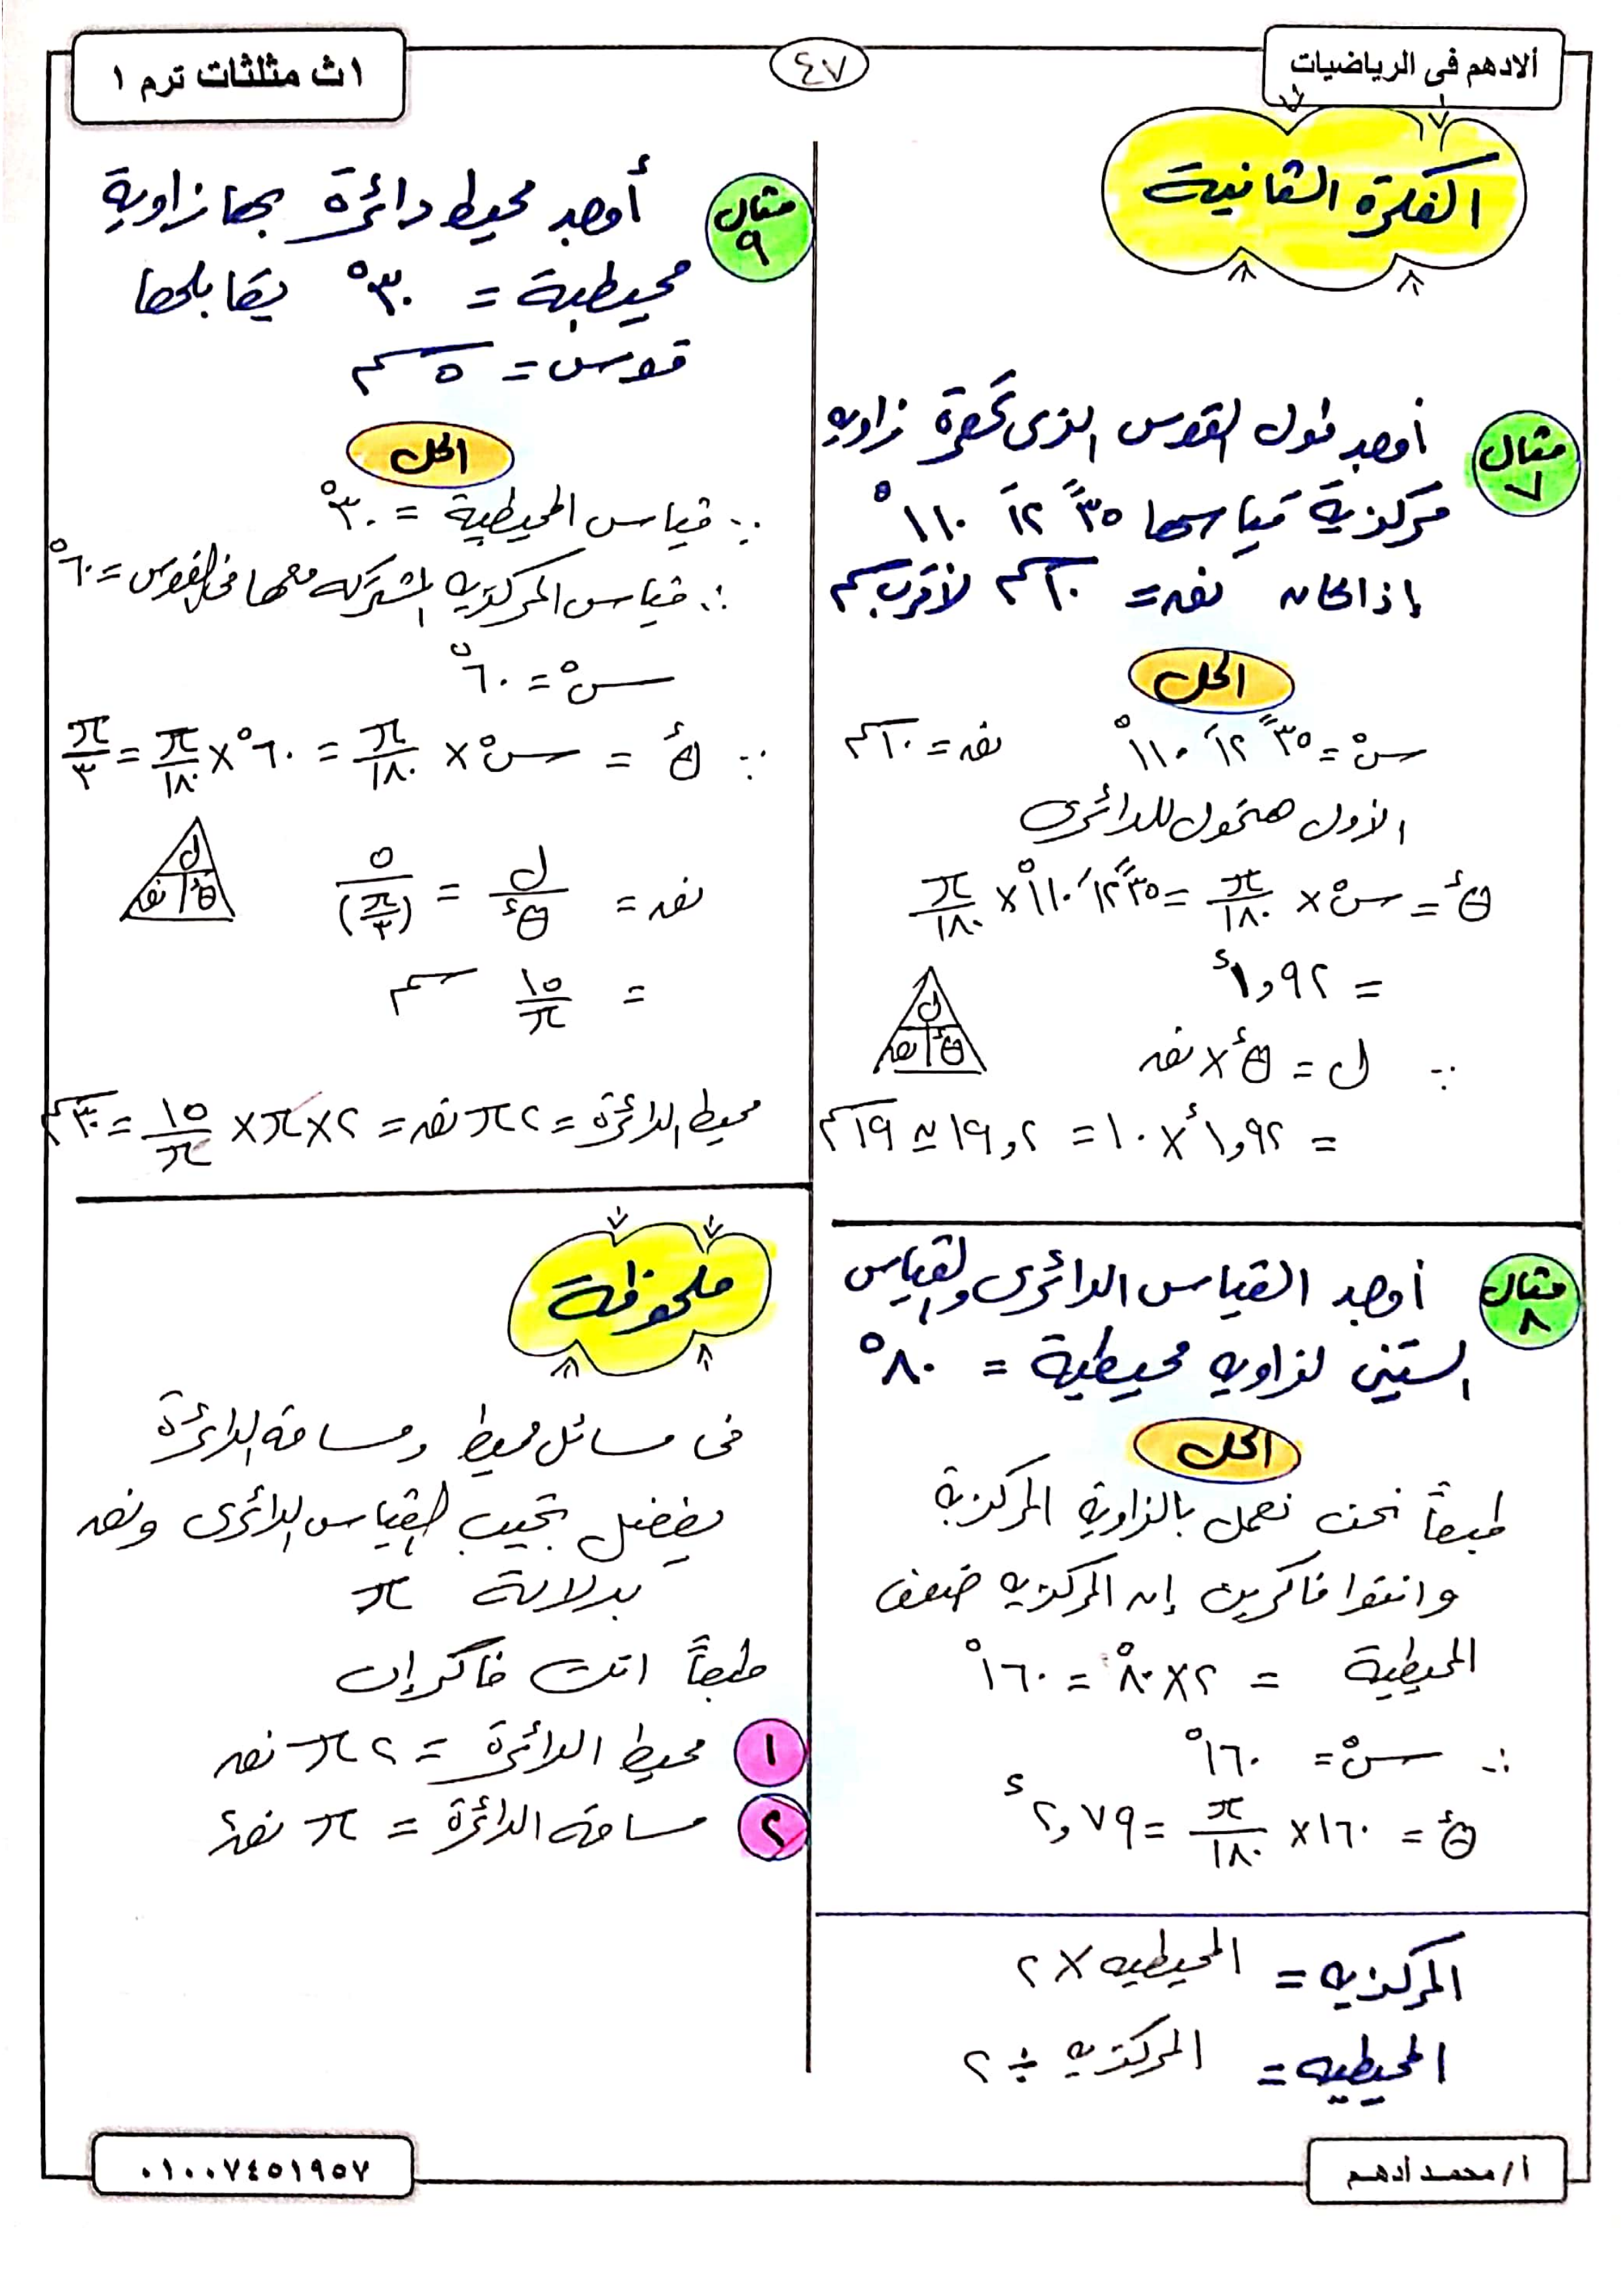 ألادهم فى الرياضيات
٤٧
١ث مثلثات ترم ١
الفكرة الثانية
مثال ٧
أوجد طول القوس الذى تحصره زاويه
مركزية قياسها ٣٥ً ١٢َ ١١٠°
إذا كان نق = ١٠سم لأقرب سم
الحل
س° = ٣٥ً ١٢َ ١١٠° نق = ١٠سم
الأول هنحول للدائرى
θء = س° × π/١٨٠ = ٣٥ً ١٢َ ١١٠° × π/١٨٠
= ١,٩٢ء
∵ ل = θء × نق
ل
θء نق
= ١,٩٢ء × ١٠ = ١٩,٢ ≃ ١٩سم
مثال ٨
أوجد القياس الدائرى والقياس
الستينى لزاويه محيطية = ٨٠°
الحل
طبعاً نحن نعمل بالزاوية المركزية
وانتوا فاكرين إن المركزيه ضعف
المحيطية = ٢×٨٠° = ١٦٠°
∴ س° = ١٦٠°
θء = ١٦٠× π/١٨٠ = ٢,٧٩ء
المركزيه = المحيطيه × ٢
المحيطيه = المركزيه ÷ ٢
مثال ٩
أوجد محيط دائرة بها زاوية
محيطية = ٣٠° يقابلها
قوس = ٥سم
الحل
∵ قياس المحيطية = ٣٠°
∴ قياس المركزيه المشتركه معها فى القوس = ٦٠°
س° = ٦٠°
∵ θء = س° × π/١٨٠ = ٦٠° × π/١٨٠ = π/٣
نق = ل/θء = ٥/(π/٣)
ل
θء نق
= ١٥/π سم
محيط الدائرة = ٢π نق = ٢×π× ١٥/π = ٣٠سم
ملحوظة
فى مسائل محيط ومساحة الدائرة
يفضل تجيب القياس الدائرى ونق
بدلالة π
طبعاً انت فاكر إن
١ محيط الدائرة = ٢π نق
٢ مساحة الدائرة = π نق٢
أ/ محمد أدهم
٠١٠٠٧٤٥١٩٥٧